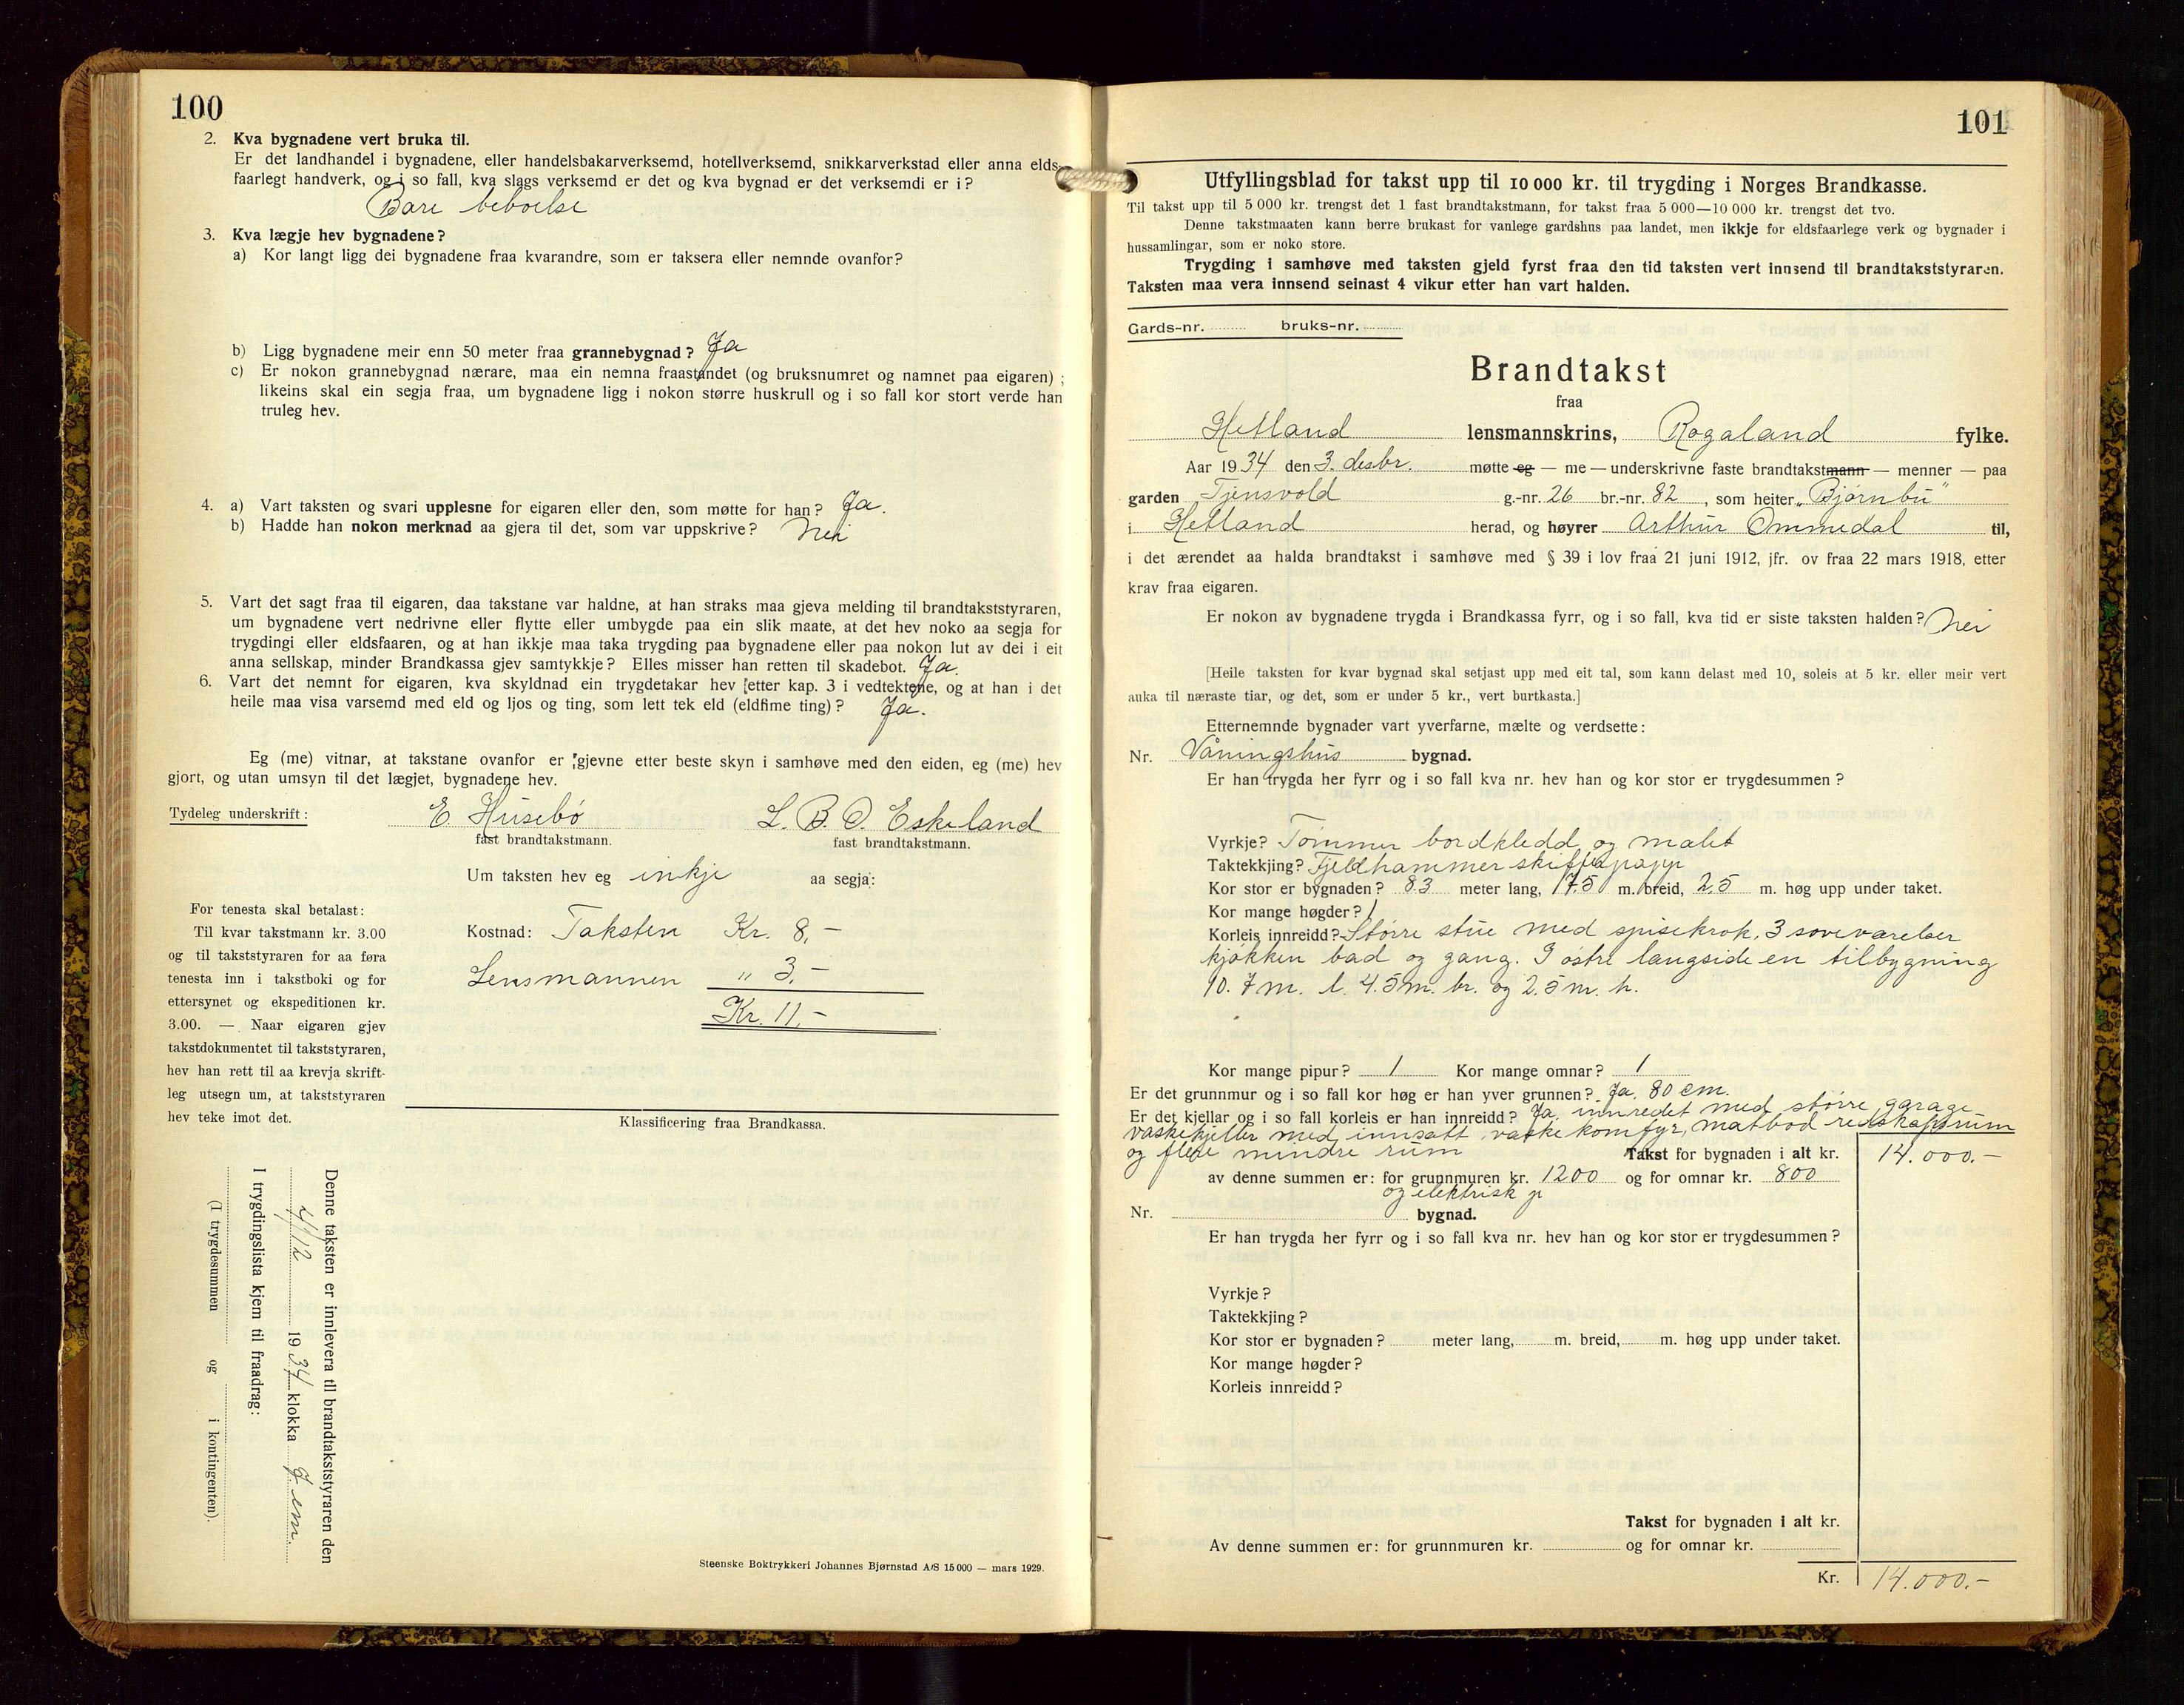 100
2. Kva bygnadene vert bruka til.
Er det landhandel i bygnadene, eller handelsbakarverksemd, hotellverksemd, snikkarverkstad eller anna elds-
faarlegt handverk, og i so fall, kva slags verksemd er det og kva bygnad er det verksemdi er i?
Bare beboelse
3. Kva lægje hev bygnadene?
a) Kor langt ligg dei bygnadene fraa kvarandre, som er taksera eller nemnde ovanfor?
b) Ligg bygnadene meir enn 50 meter fraa grannebygnad? Ja
c) Er nokon grannebygnad nærare, maa ein nemna fraastandet (og bruksnumret og namnet paa eigaren) ;
likeins skal ein segja fraa, um bygnadene ligg i nokon større huskrull og i so fall kor stort verde han
truleg hev.
4. a) Vart taksten og svari upplesne for eigaren eller den, som møtte for han? Ja.
b) Hadde han nokon merknad aa gjera til det, som var uppskrive? Nei
5. Vart det sagt fraa til eigaren, daa takstane var haldne, at han straks maa gjeva melding til brandtakststyraren,
um bygnadene vert nedrivne eller flytte eller umbygde paa ein slik maate, at det hev noko aa segja for
trygdingi eller eldsfaaren, og at han ikkje maa taka trygding paa bygnadene eller paa nokon lut av dei i eit
anna sellskap, minder Brandkassa gjev samtykkje? Elles misser han retten til skadebot. Ja.
6. Vart det nemnt for eigaren, kva skyldnad ein trygdetakar hev etter kap. 3 i vedtektene, og at han i det
heile maa visa varsemd med eld og ljos og ting, som lett tek eld (eldfime ting)? Ja.
Eg (me) vitnar, at takstane ovanfor er gjevne etter beste skyn i samhøve med den eiden, eg (me) hev
gjort, og utan umsyn til det lægjet, bygnadene hev.
Tydeleg underskrift: E. Husebø L. B. O. Eskeland
fast brandtakstmann. fast brandtakstmann.
Um taksten hev eg inkje aa segja:
For tenesta skal betalast:
Til kvar takstmann kr. 3.00
og til takststyraren for aa føra
tenesta inn i takstboki og for
ettersynet og ekspeditionen kr.
3.00. — Naar eigaren gjev
takstdokumentet til takststyraren,
hev han rett til aa krevja skrift-
leg utsegn um, at takststyraren
hev teke imot det.
Kostnad: Taksten Kr. 8,-
Lensmannen " 3,-
Kr. 11,-
Klassificering fraa Brandkassa.
Denne taksten er innlevera til brandtakststyraren den
4/12 1934 klokka 7 em.
I trygdingslista kjem til fraadrag:
(I trygdesummen og i kontingenten).
Steenske Boktrykkeri Johannes Bjørnstad A/S 15 000 — mars 1929.
101
Utfyllingsblad for takst upp til 10 000 kr. til trygding i Norges Brandkasse.
Til takst upp til 5 000 kr. trengst det 1 fast brandtakstmann, for takst fraa 5 000—10 000 kr. trengst det tvo.
Denne takstmaaten kann berre brukast for vanlege gardshus paa landet, men ikkje for eldsfaarlege verk og bygnader i
hussamlingar, som er noko store.
Trygding i samhøve med taksten gjeld fyrst fraa den tid taksten vert innsend til brandtakststyraren.
Taksten maa vera innsend seinast 4 vikur etter han vart halden.
Gards-nr. bruks-nr.
Brandtakst
fraa
Hetland lensmannskrins, Rogaland fylke.
Aar 1934 den 3. desbr. møtte eg — me — underskrivne faste brandtakstmann — menner — paa
garden Tjensvold g.-nr. 26 br.-nr. 82, som heiter "Bjørnbu"
i Hetland herad, og høyrer Arthur Ommedal til,
i det ærendet aa halda brandtakst i samhøve med § 39 i lov fraa 21 juni 1912, jfr. ov fraa 22 mars 1918, etter
krav fraa eigaren.
Er nokon av bygnadene trygda i Brandkassa fyrr, og i so fall, kva tid er siste taksten halden? Nei
[Heile taksten for kvar bygnad skal setjast upp med eit tal, som kann delast med 10, soleis at 5 kr. eller meir vert
auka til næraste tiar, og det, som er under 5 kr., vert burtkasta.]
Etternemnde bygnader vart yverfarne, mælte og verdsette:
Nr. Våningshus bygnad.
Er han trygda her fyrr og i so fall kva nr. hev han og kor stor er trygdesummen?
Vyrkje? Tømmer bordkledd og malet
Taktekkjing? Fjeldhammer skiferpapp
Kor stor er bygnaden? 8.3 meter lang, 7.5 m. breid, 2.5 m. høg upp under taket.
Kor mange høgder? 1
Korleis innreidd? Større stue med spisekrok, 3 soveværelser
kjøkken bad og gang. I østre langside en tilbygning
10.7 m. l. 4.5 m. br. og 2.5 m. h.
Kor mange pipur? 1 Kor mange omnar? 1
Er det grunnmur og i so fall kor høg er han yver grunnen? Ja, 80 cm.
Er det kjellar og i so fall korleis er han innreidd? Ja, innredet med større garage
vaskekjeller med innsatt vaskekomfyr, matbod redskapsrum
og flere mindre rum Takst for bygnaden i alt kr. 14.000.-
av denne summen er: for grunnmuren kr. 1200 og for omnar kr. 800
og elektrisk
Nr. bygnad.
Er han trygda her fyrr og i so fall kva nr. hev han og kor stor er trygdesummen?
Vyrkje?
Taktekkjing?
Kor stor er bygnaden? meter lang, m. breid, m. høg upp under taket.
Kor mange høgder?
Korleis innreidd?
Takst for bygnaden i alt kr.
Av denne summen er: for grunnmuren kr. og for omnar kr.
Kr. 14.000.-